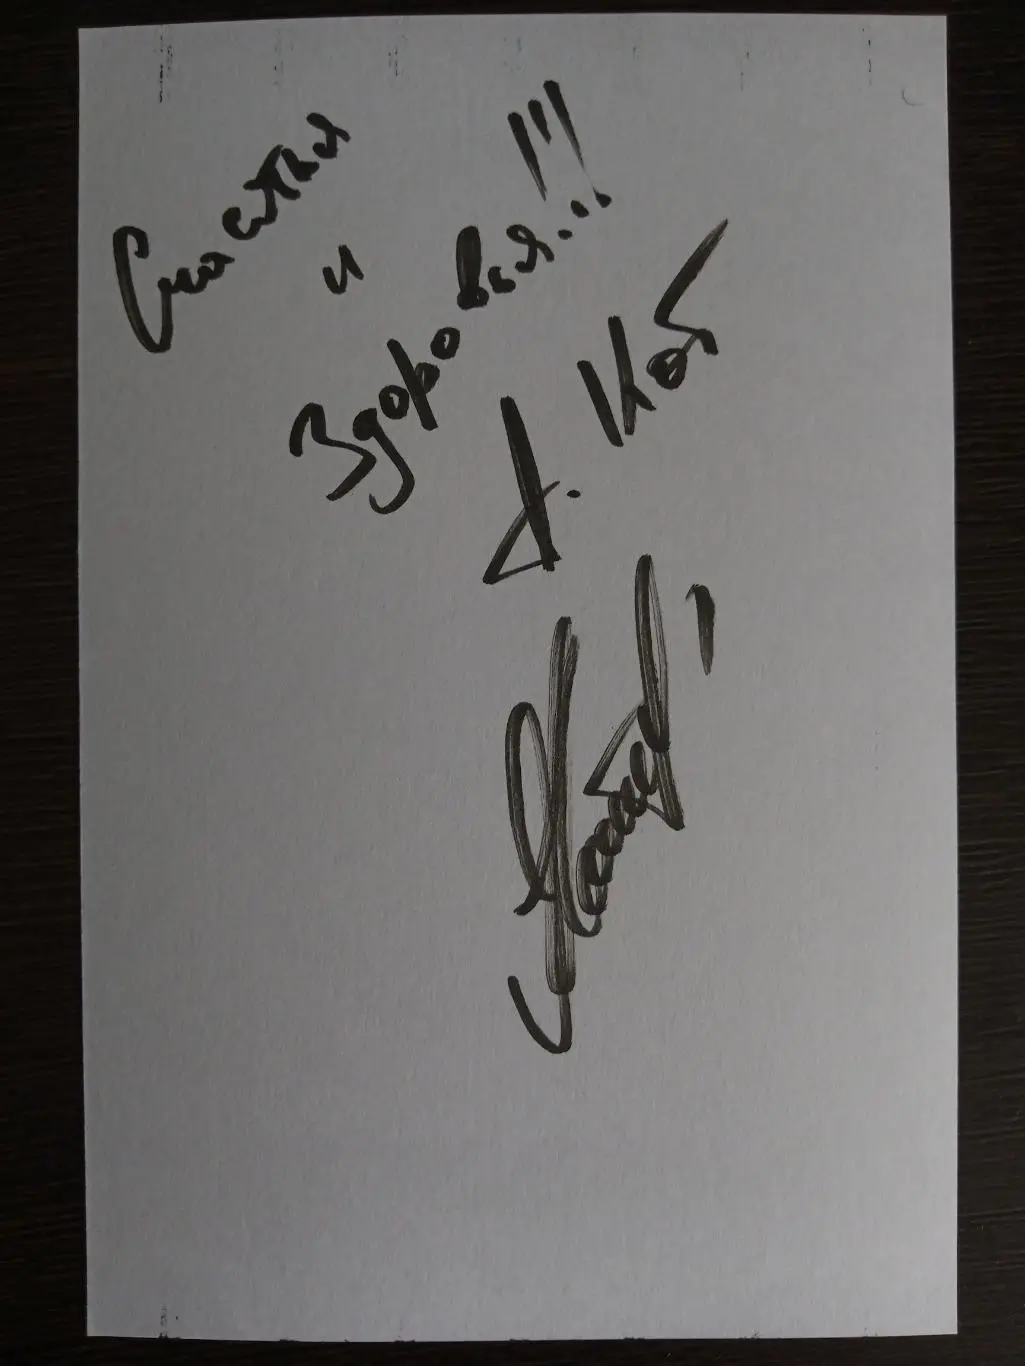 Счастья
и
Здоровья...!!!
А. Коб